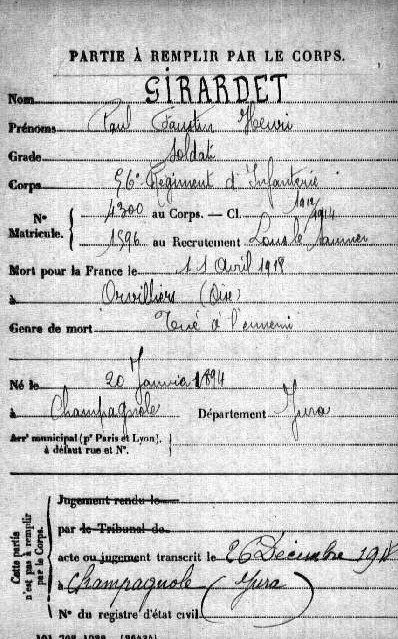 PARTIE À REMPLIR PAR LE CORPS.
Nom GIRARDET
Prénoms Paul Faustin Henri
Grade Soldat
Corps 56e Régiment d'Infanterie
N° Matricule. { 4300 au Corps. — Cl. 1912/1914
1596 au Recrutement Lons le Saunier
Mort pour la France le 11 Avril 1918
à Orvilliers (Oise)
Genre de mort Tué à l'ennemi
Né le 20 Janvier 1894
à Champagnole Département Jura
Arrt municipal (pr Paris et Lyon),
à défaut rue et N°.
Cette partie n'est pas à remplir par le Corps.
Jugement rendu le
par le Tribunal de
acte ou jugement transcrit le 26 Décembre 1918
à Champagnole (Jura)
N° du registre d'état civil